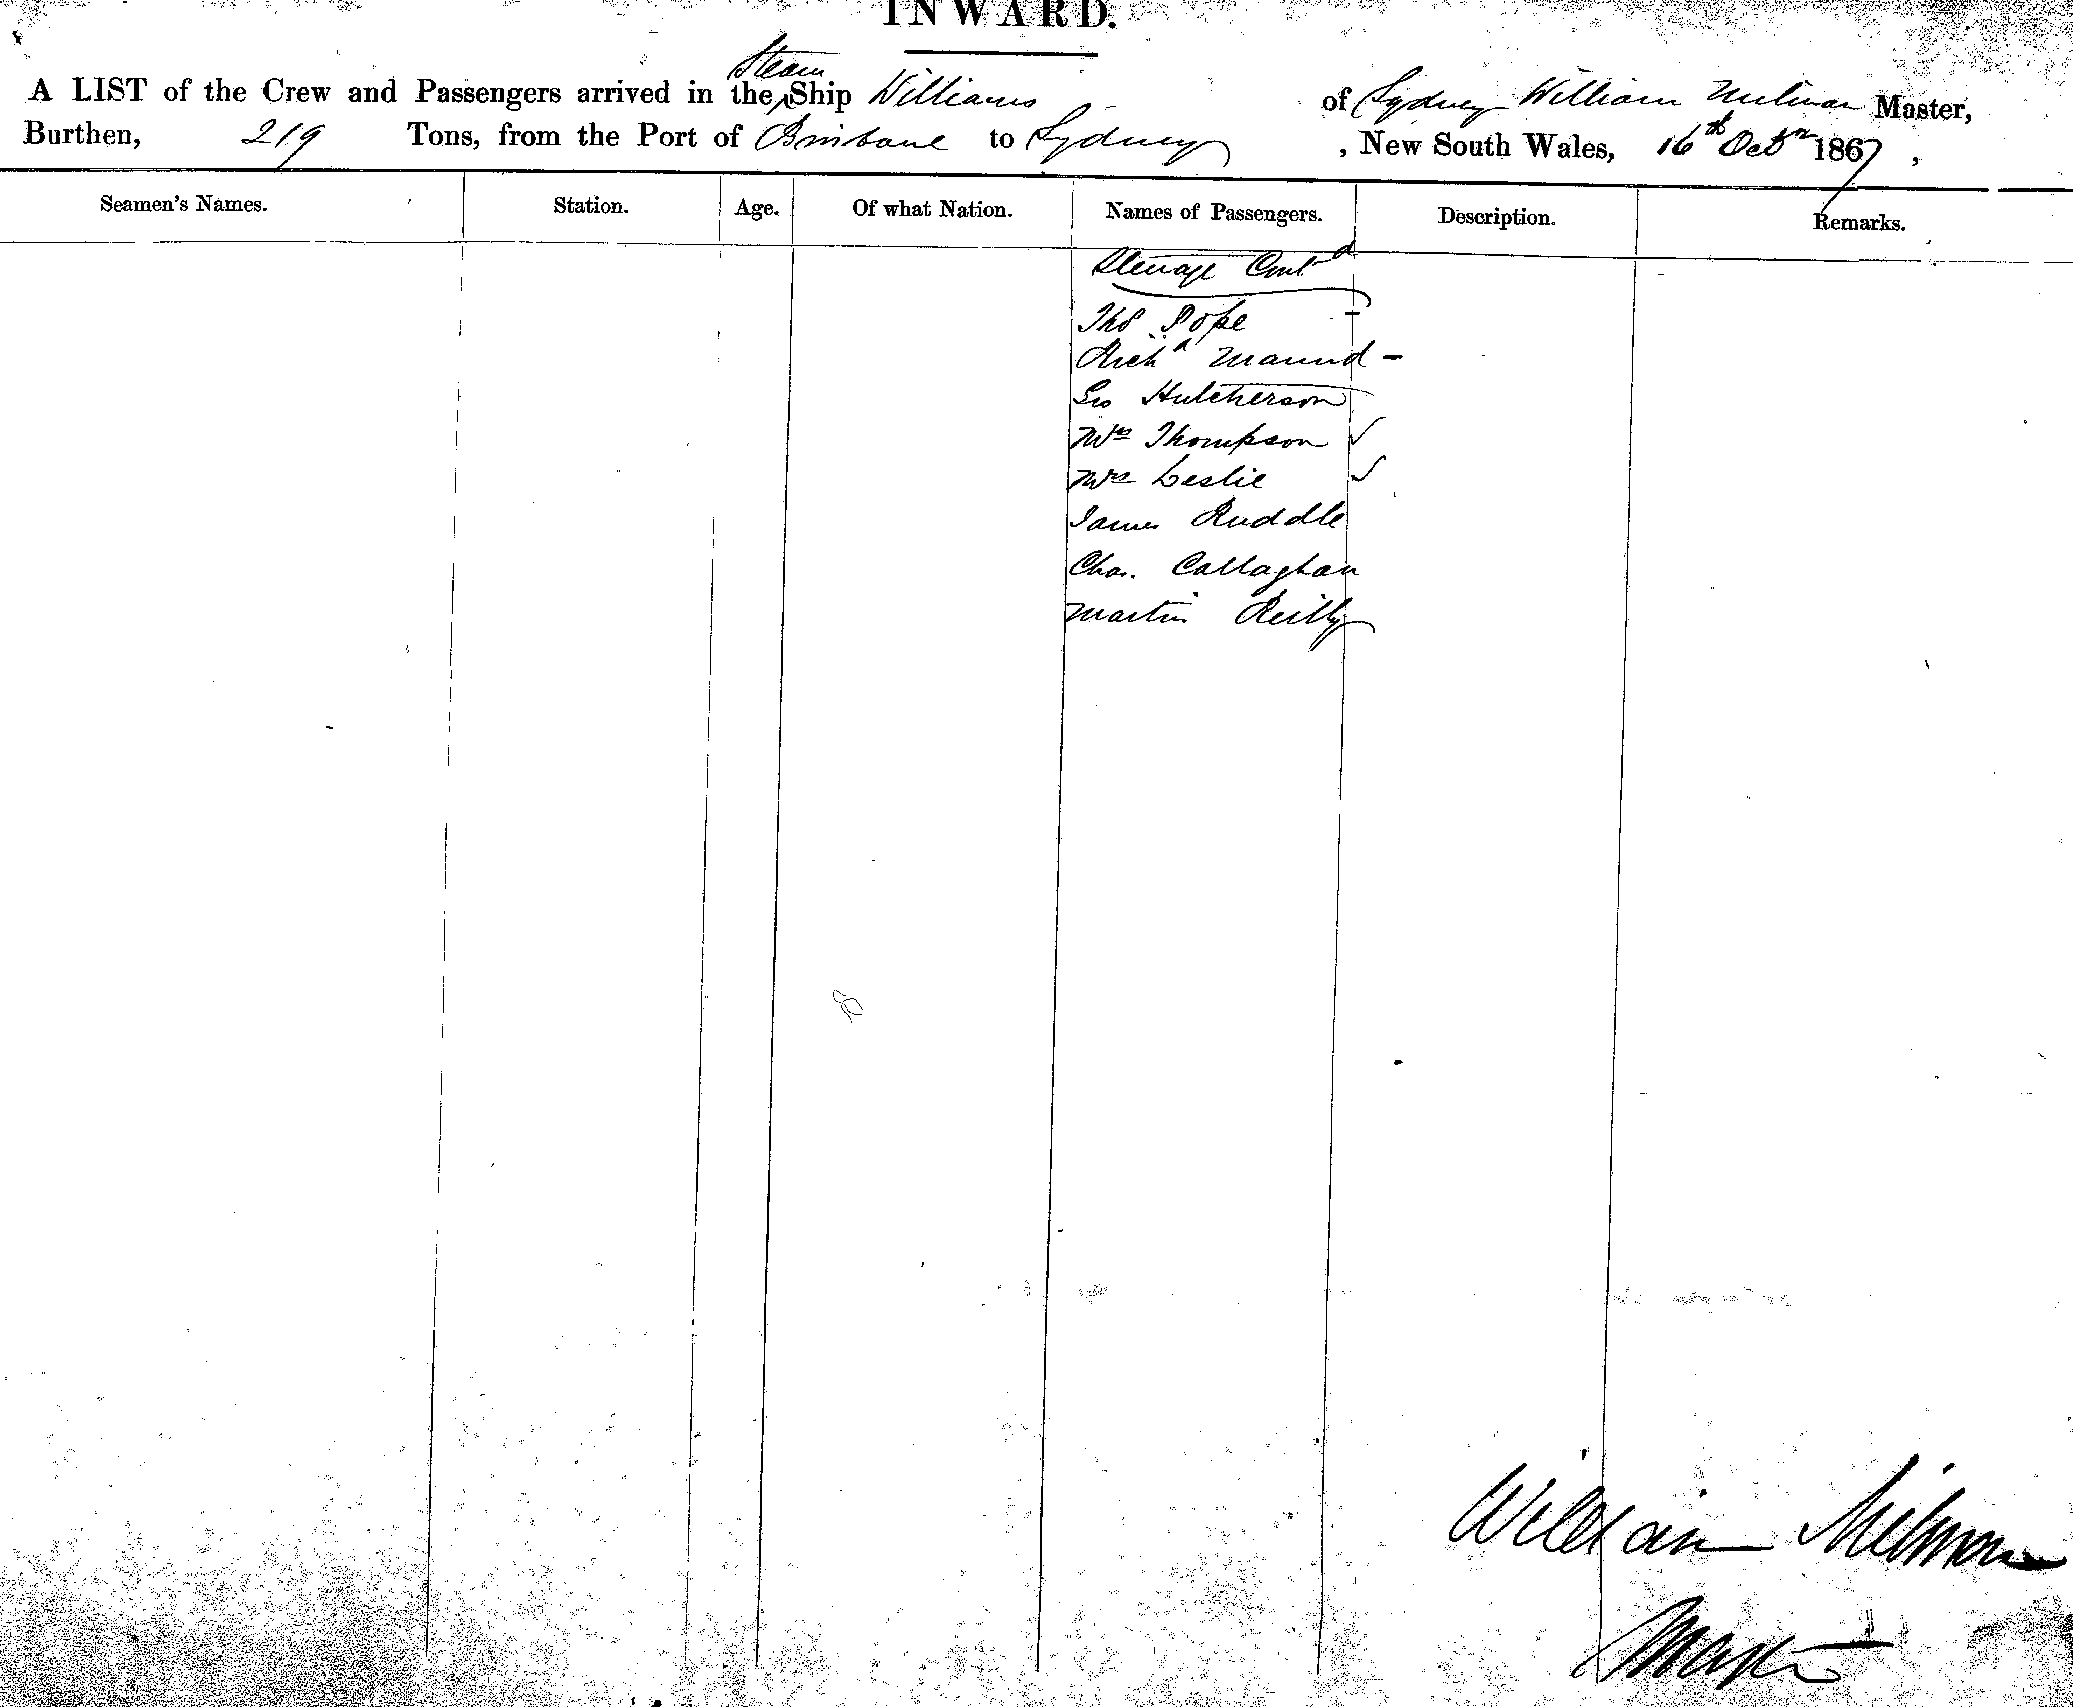 INWARD.
A LIST of the Crew and Passengers arrived in the Steam Ship Williams of Sydney William Milman Master,
Burthen, 219 Tons, from the Port of Brisbane to Sydney, New South Wales, 16th Octr 1867,
Seamen's Names. Station. Age. Of what Nation. Names of Passengers. Description. Remarks.
Steerage Contd
Tho Pope -
Richd Maund -
Geo Hutcherson
Mrs Thompson ✓
Mrs Leslie ✓
James Ruddle
Chas. Callaghan
Martin Reilly
William Milman
Master